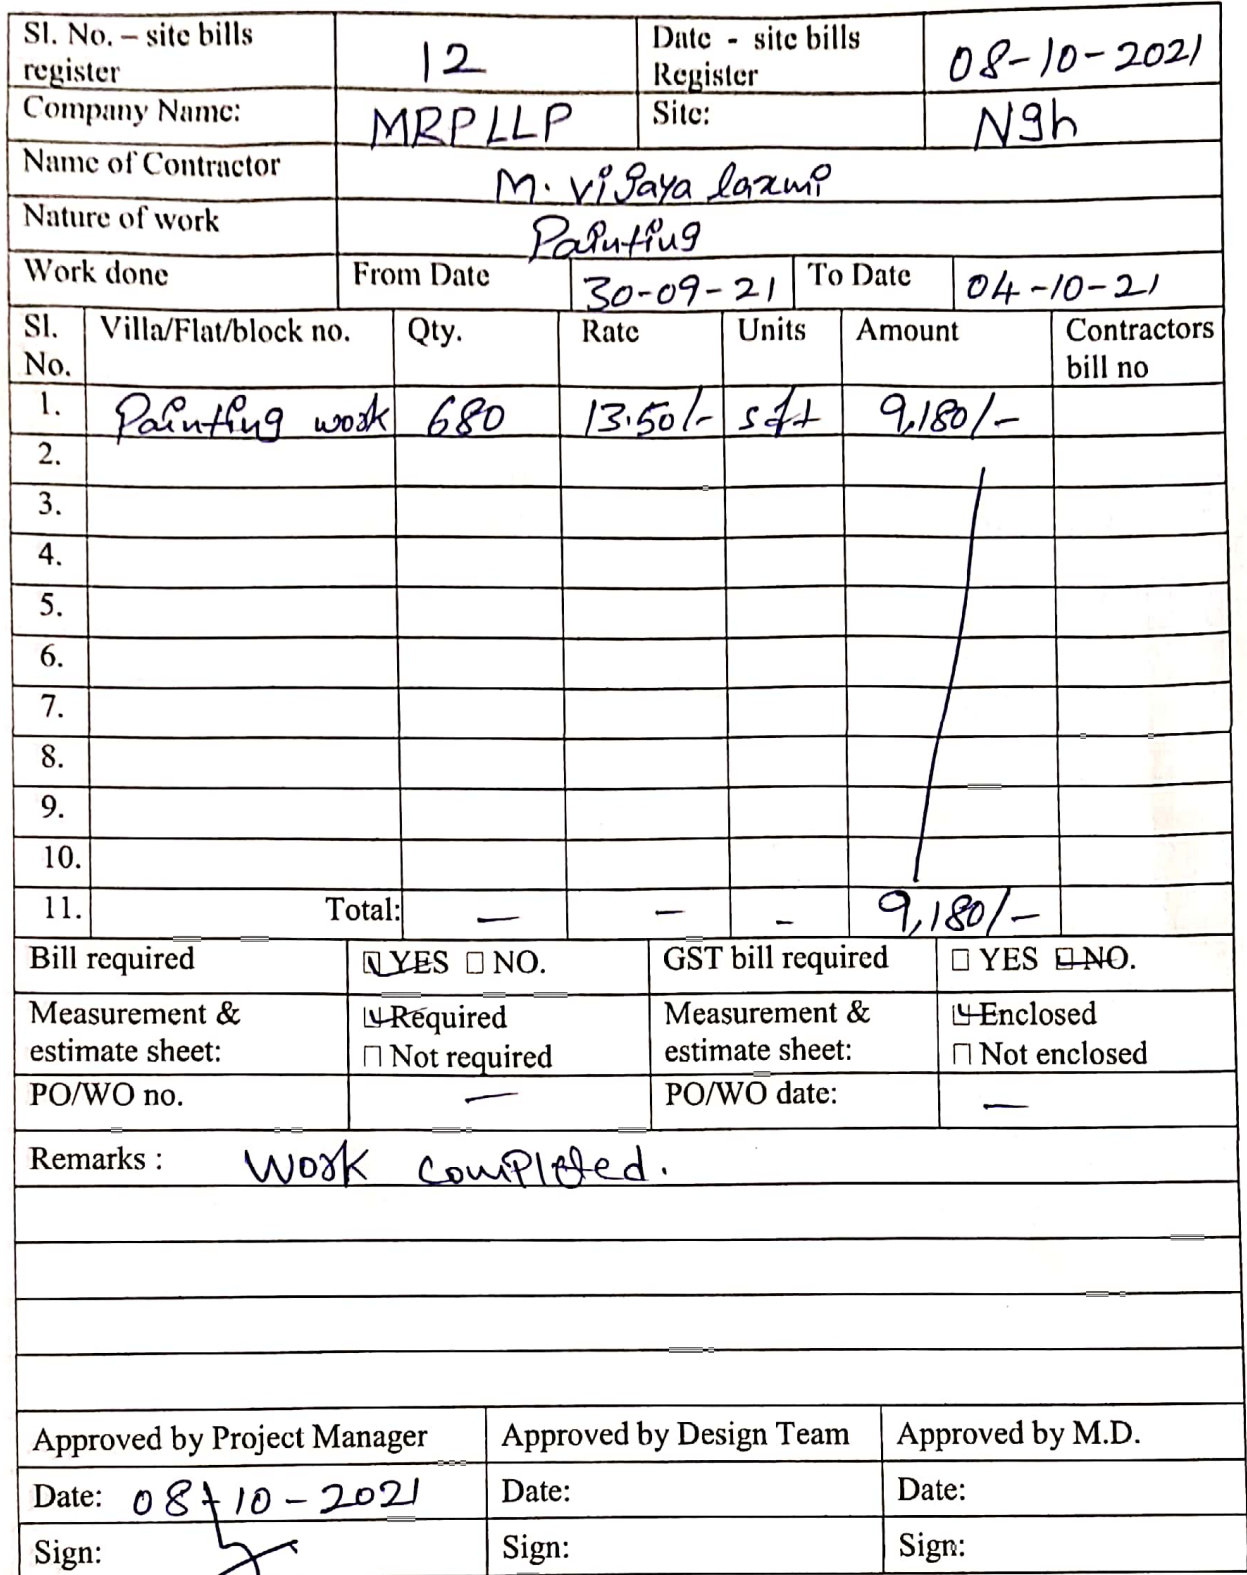 Sl. No. – site bills register 12 Date - site bills Register 08-10-2021
Company Name: MRPLLP Site: Ngh
Name of Contractor M. Vijaya laxmi
Nature of work Painting
Work done From Date 30-09-21 To Date 04-10-21
Sl. No. Villa/Flat/block no. Qty. Rate Units Amount Contractors bill no
1. Painting work 680 13.50/- sft 9,180/-
2.
3.
4.
5.
6.
7.
8.
9.
10.
11. Total: — — - 9,180/-
Bill required YES NO. GST bill required YES NO.
Measurement & estimate sheet: Required Not required Measurement & estimate sheet: Enclosed Not enclosed
PO/WO no. — PO/WO date: —
Remarks : Work completed.
Approved by Project Manager Approved by Design Team Approved by M.D.
Date: 08-10-2021 Date: Date:
Sign: Sign: Sign: